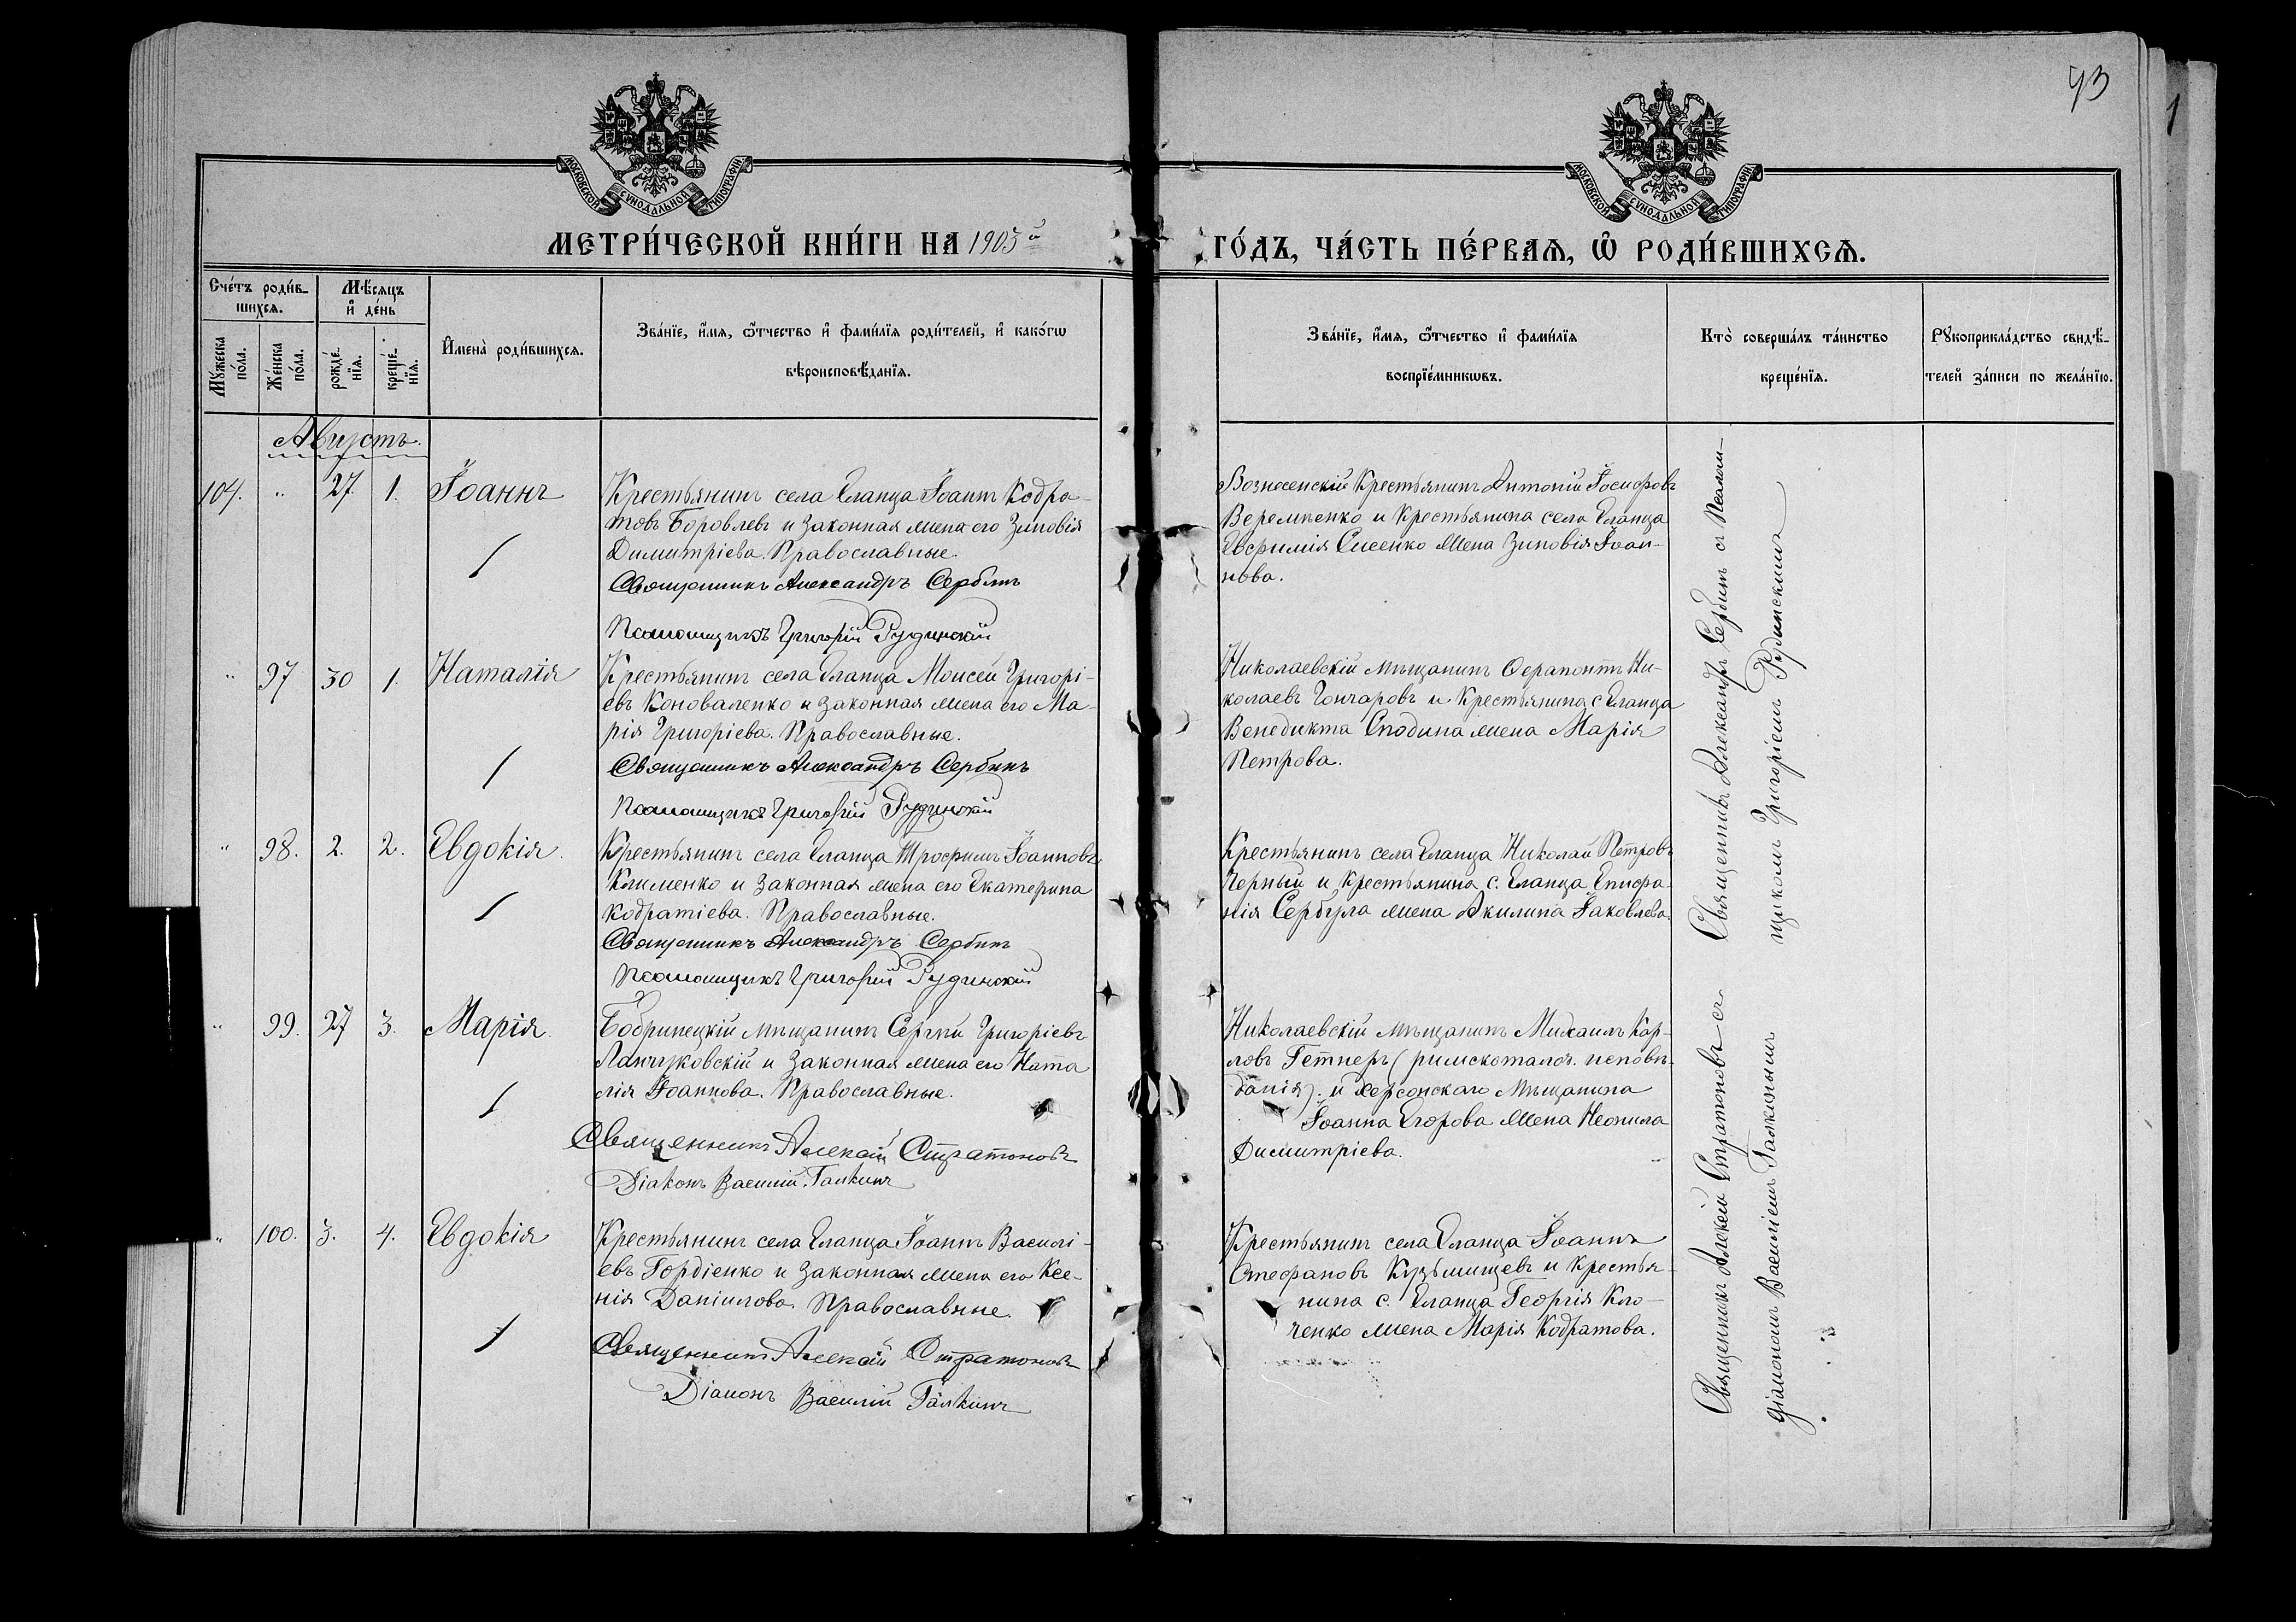 93
МОСКОВСКОЙ СѴНОДАЛЬНОЙ ТИПОГРАФІИ
МОСКОВСКОЙ СѴНОДАЛЬНОЙ ТИПОГРАФІИ
МЕТРИ́ЧЕСКОЙ КНИ́ГИ НА 1903й
ГО́ДЪ, ЧА́СТЬ ПЕ́РВАЯ, Ѡ҆ РОДИ́ВШИХСЯ.
Сче́тъ роди́в-
шихся.
Мѣ́сяцъ
и҆ де́нь
Мꙋ́жеска
по́ла.
Же́нска
по́ла.
рожде́-
нїя.
креще́-
нїя.
И҆мена̀ роди́вшихся.
Зва́нїе, и҆́мя, ѻ҆́тчество и҆ фами́лїя роди́телей, и҆ како́гѡ
вѣроисповѣ́данїя.
Зва́нїе, и҆́мя, ѻ҆́тчество и҆ фами́лїя
воспрїе́мникѡвъ.
Кто̀ соверша́лъ та́инство
креще́нїя.
Рꙋкоприкла́дство свидѣ́-
телей за́писи по жела́нїю.
Августъ.
104. " 27. 1. Іоаннъ
Крестьянинъ села Еланца Іоаннъ Кодра-
товъ Боровлевъ и законная жена его Зиновія
Димитріева. Православные.
Священникъ Александръ Сербинъ
Псаломщикъ Григорій Рудинскій
Вознесенскій Крестьянинъ Антоній Іосифовъ
Веремѣенко и Крестьянина села Еланца
Евфимія Сисенко жена Зиновія Іоан-
нова.
" 97 30 1. Наталія
Крестьянинъ села Еланца Моисей Григорі-
евъ Коноваленко и законная жена его Ма-
рія Григоріева. Православные.
Священникъ Александръ Сербинъ
Псаломщикъ Григорій Рудинскій
Николаевскій мѣщанинъ Ферапонтъ Ни-
колаевъ Гончаровъ и Крестьянина с Еланца
Венедикта Сподина жена Марія
Петрова.
" 98. 2. 2. Евдокія.
Крестьянинъ села Еланца Трофимъ Іоанновъ
Клименко и законная жена его Екатерина
Кодратіева. Православные.
Священникъ Александръ Сербинъ
Псаломщикъ Григорій Рудинскій
Крестьянинъ села Еланца Николай Петровъ
Черный и крестьянина с. Еланца Епифа-
нія Сербула жена Акилина Іаковлева.
Священникъ Александръ Сербинъ съ Псалом-
щикомъ Григоріемъ Рудинскимъ
" 99. 27 3. Марія.
Бобринецкій мѣщанинъ Сергѣй Григоріевъ
Ланчуковскій и законная жена его Ната
лія Іоаннова. Православные.
Священникъ Алексѣй Стратоновъ
Діаконъ Василій Галкинъ
Николаевскій мѣщанинъ Михаилъ Кар-
ловъ Гетнеръ (римскоталол. исповѣ-
данія). и херсонскаго мѣщанина
Іоанна Егорова жена Неонила
Димитріева.
" 100. 3. 4. Евдокія
Крестьянинъ села Еланца Іоаннъ Василі-
евъ Гордіенко и законная жена его Ксе-
нія Даніилова. Православные.
Священникъ Алексѣй Стратоновъ
Діаконъ Василій Галкинъ
Крестьянинъ села Еланца Іоаннъ
Стефановъ Кузьмищевъ и крестья-
нина с. Еланца Георгія Кло-
ченко жена Марія Кодратова.
Священникъ Алексѣй Стратоновъ съ
діакономъ Василіемъ Галкинымъ